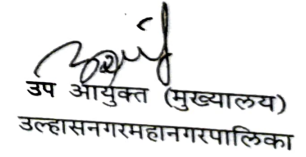 उप आयुक्त (मुख्यालय)
उल्हासनगरमहानगरपालिका